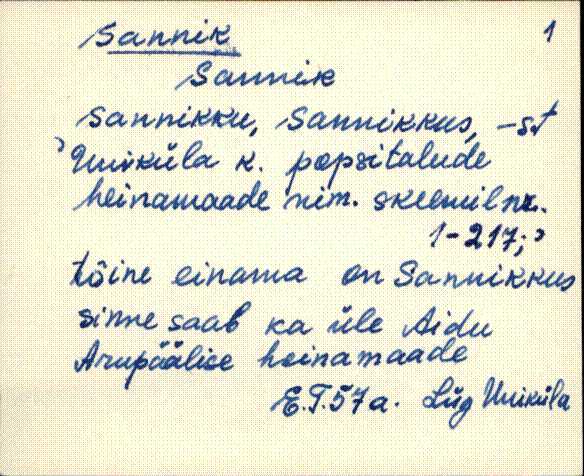 Sannik 1
Sannik
Sannikku, Sannikkus, -st
Uniküla k. popsitalude
heinamaade nim. skeemil nr.
1-217;
tõine einama on Sannikkus
sinne saab ka üle Aidu
Arupäälise heinamaade
E.T.57a. Lüg Uniküla